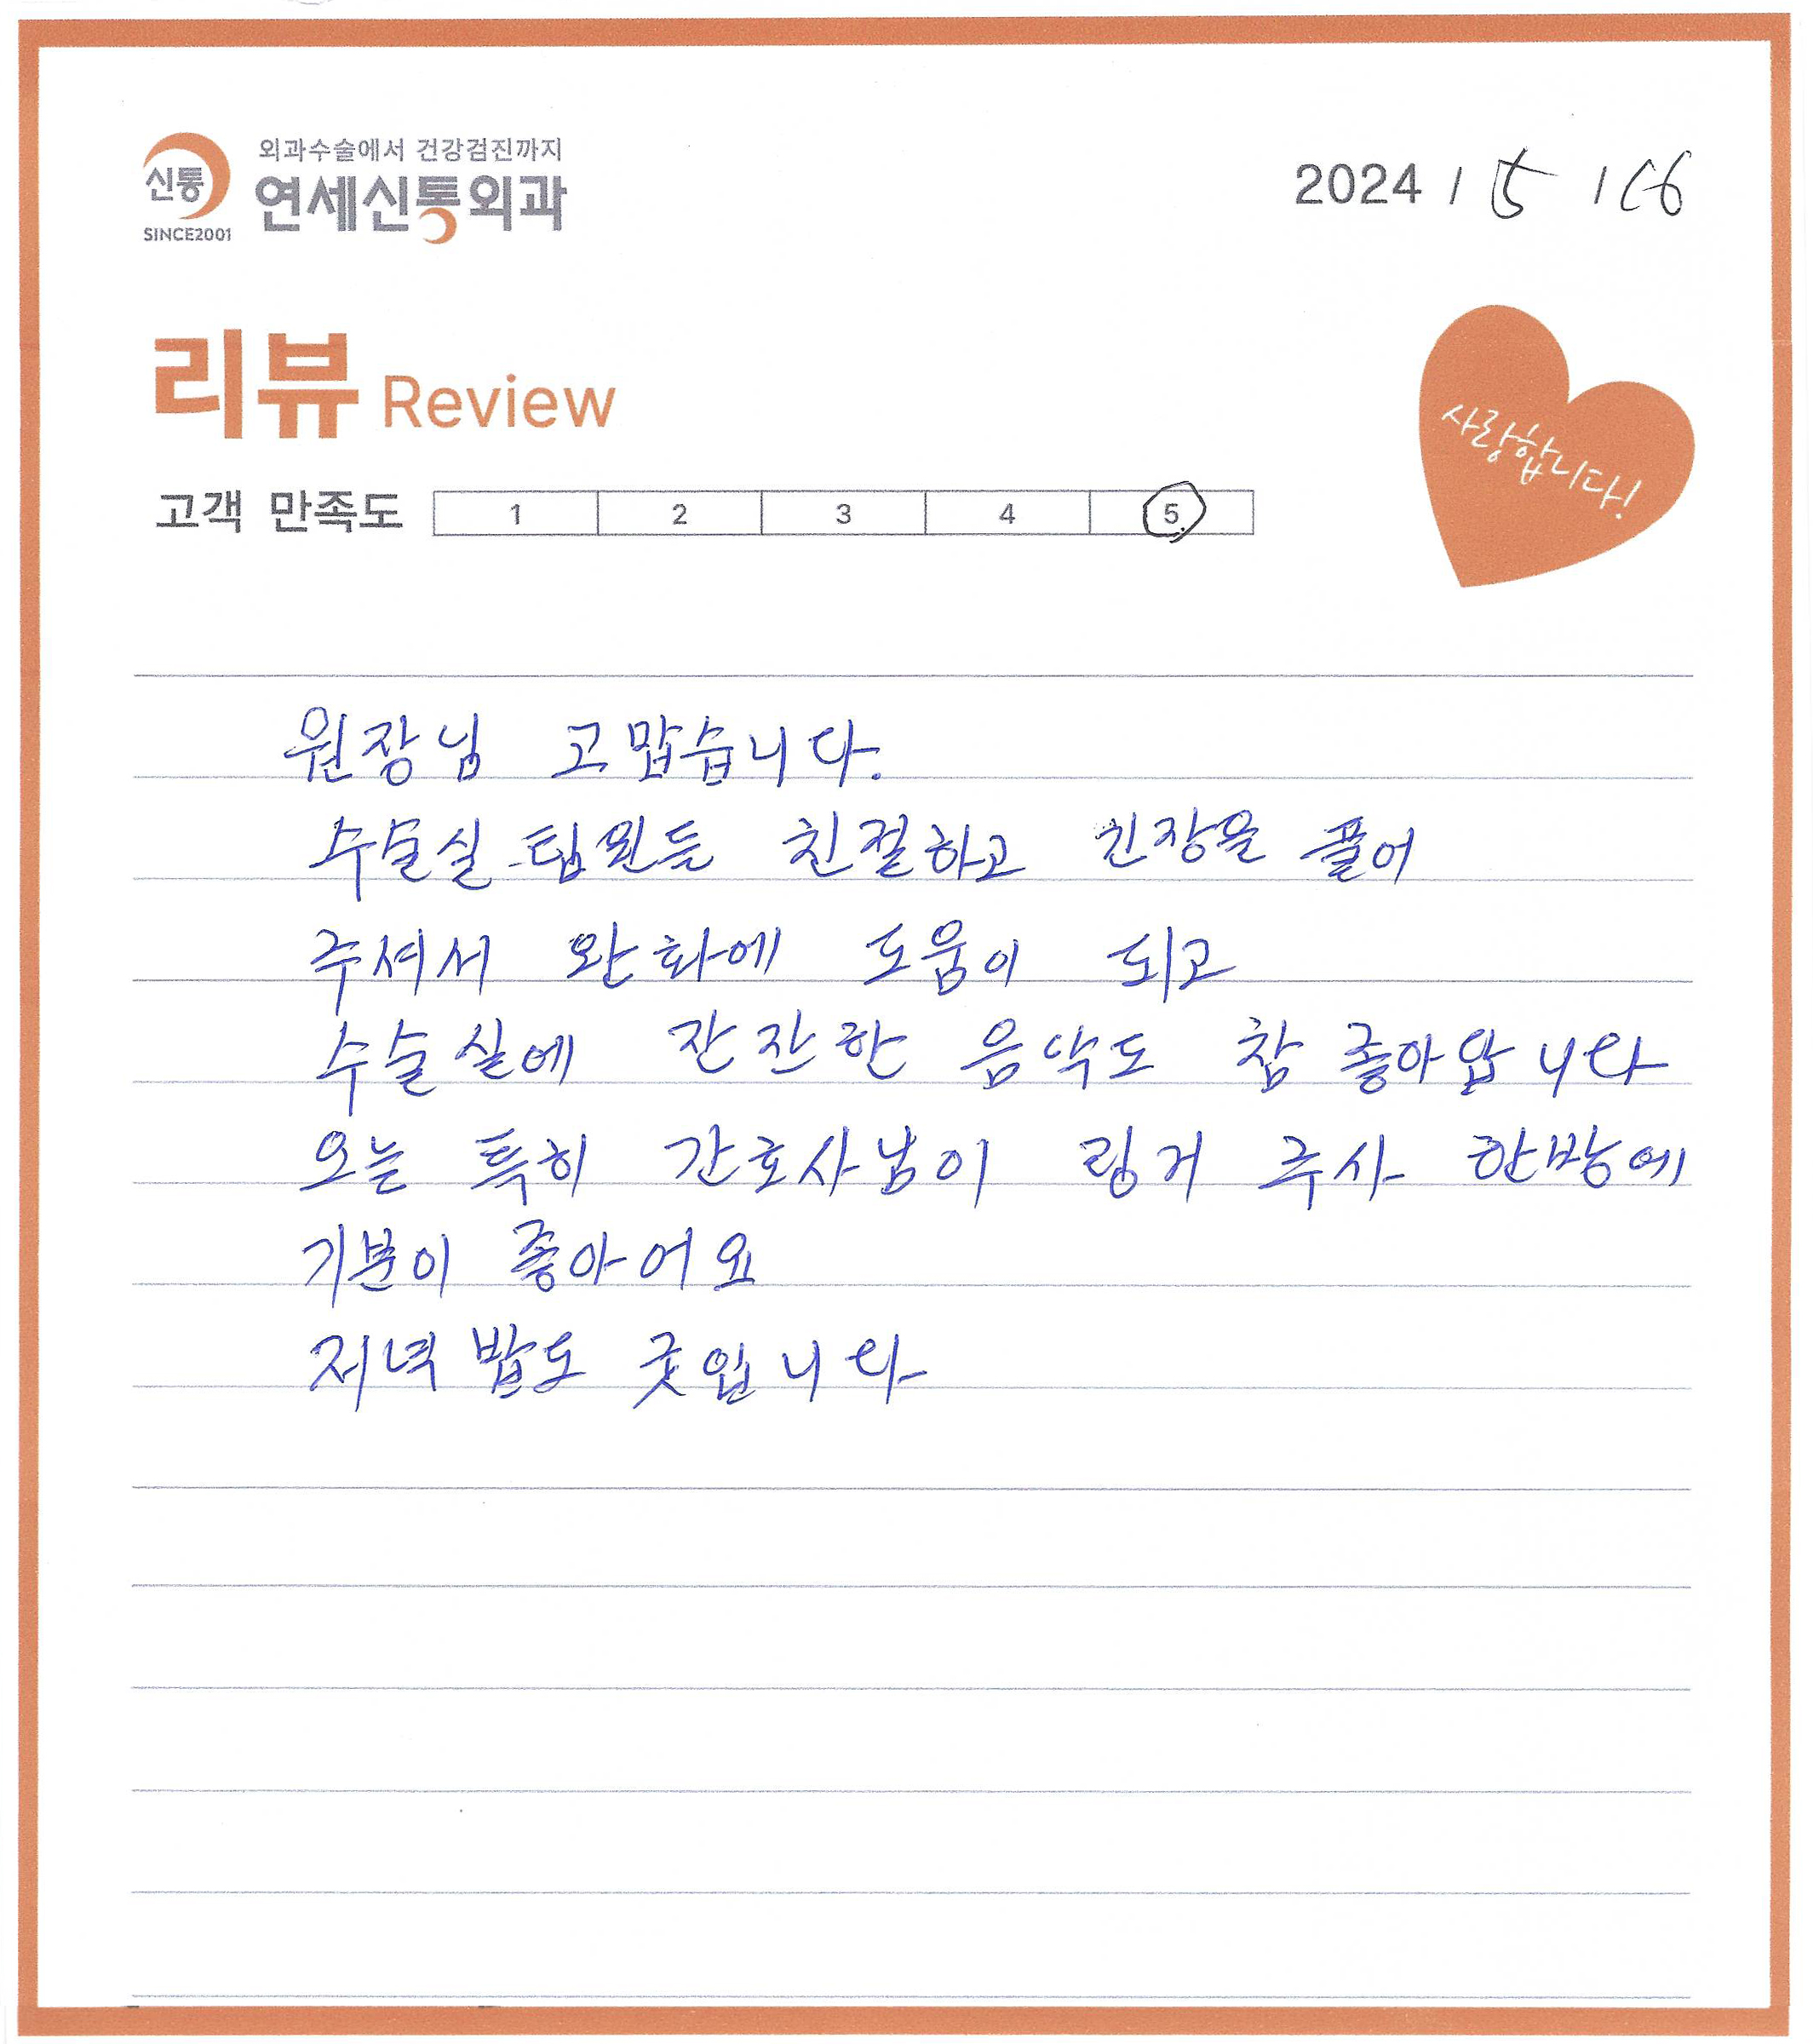 외과수술에서 건강검진까지
신통 연세신통외과
SINCE2001
2024 / 5 / 16
리뷰 Review
사랑합니다!
고객 만족도 1 2 3 4 5
원장님 고맙습니다.
수술실 팀원들 친절하고 긴장을 풀어
주셔서 완화에 도움이 되고
수술실에 잔잔한 음악도 참 좋아압니다
오늘 특히 간호사님이 링거 주사 한방에
기분이 좋아어요
저녁 밥도 굿입니다